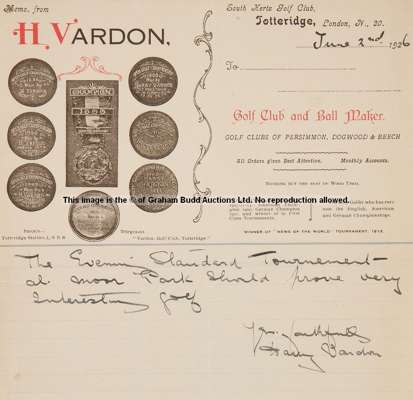 Memo. from
H. VARDON.
South Herts Golf Club,
Totteridge, London, N., 20.
June 2nd 1926
To
Golf Club and Ball Maker.
GOLF CLUBS OF PERSIMMON, DOGWOOD & BEECH
All Orders given Best Attention. Monthly Accounts.
NOTHING BUT THE BEST OF WOOD USED.
CHAMPION
This image is the © of Graham Budd Auctions Ltd. No reproduction allowed.
WINNER OF "NEWS OF THE WORLD" TOURNAMENT, 1912.
Telegrams:
"Vardon, Golf Club, Totteridge."
The Evening Standard Tournament
at Moor Park should prove very
Interesting golf
Yours faithfully
Harry Vardon